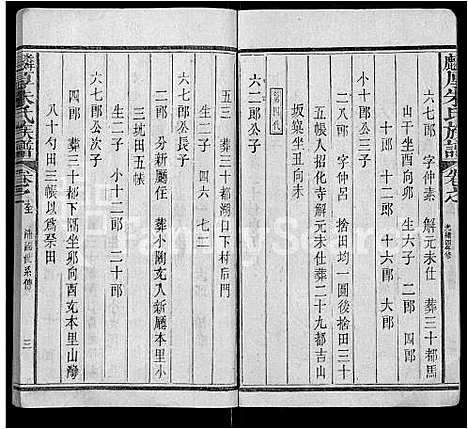 麟厚朱氏族譜 卷之
光緒四年修
六七郎 字仲素 解元未仕 葬三十都馬
山干坐酉向卯 生六子 二郎 四郎
十郎 十一郎 十六郎 大郎
小十郎公三子
二八郎 字仲呂 捨田均一圖後捨田三十
五帳人招化寺解元未仕葬二十九都吉山
坂窠坐丑向未
第四代
六二郎公子
五三 葬三十都湖口下村后門
六七郎公長子
生二子 四六 七二
二郎 分新屬任 葬小陶玄入新屬本里小
三坑田五帳
六七郎公次子
生二子 小十二郎 二十郎
四郎 葬三十都下隔坐卯向酉玄本里山灣
八十勺田三帳以為祭田
麟厚朱氏族譜 卷之
三